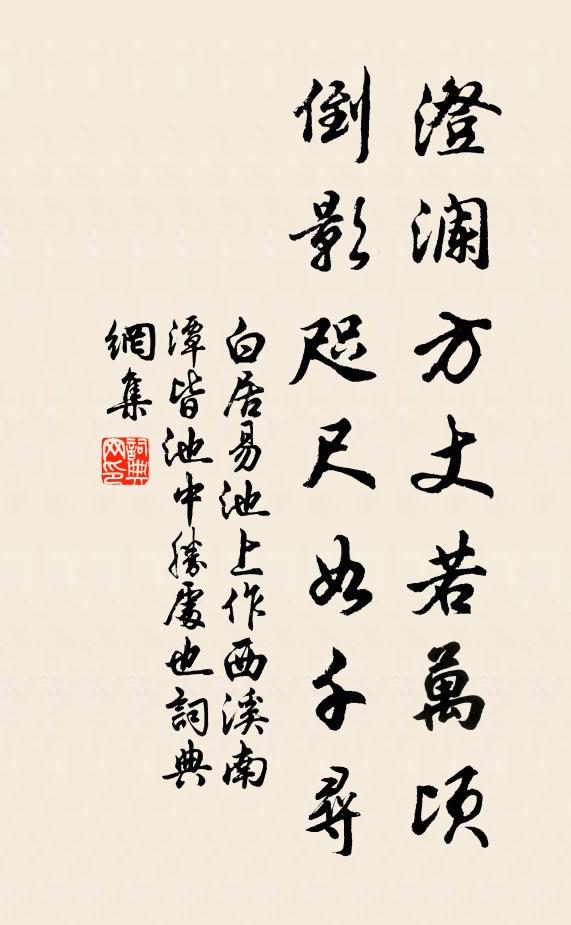 澄瀾方丈若萬頃
倒影咫尺如千尋
白居易池上作西溪南
潭皆池中勝處也詞典
網集
詞典
网印